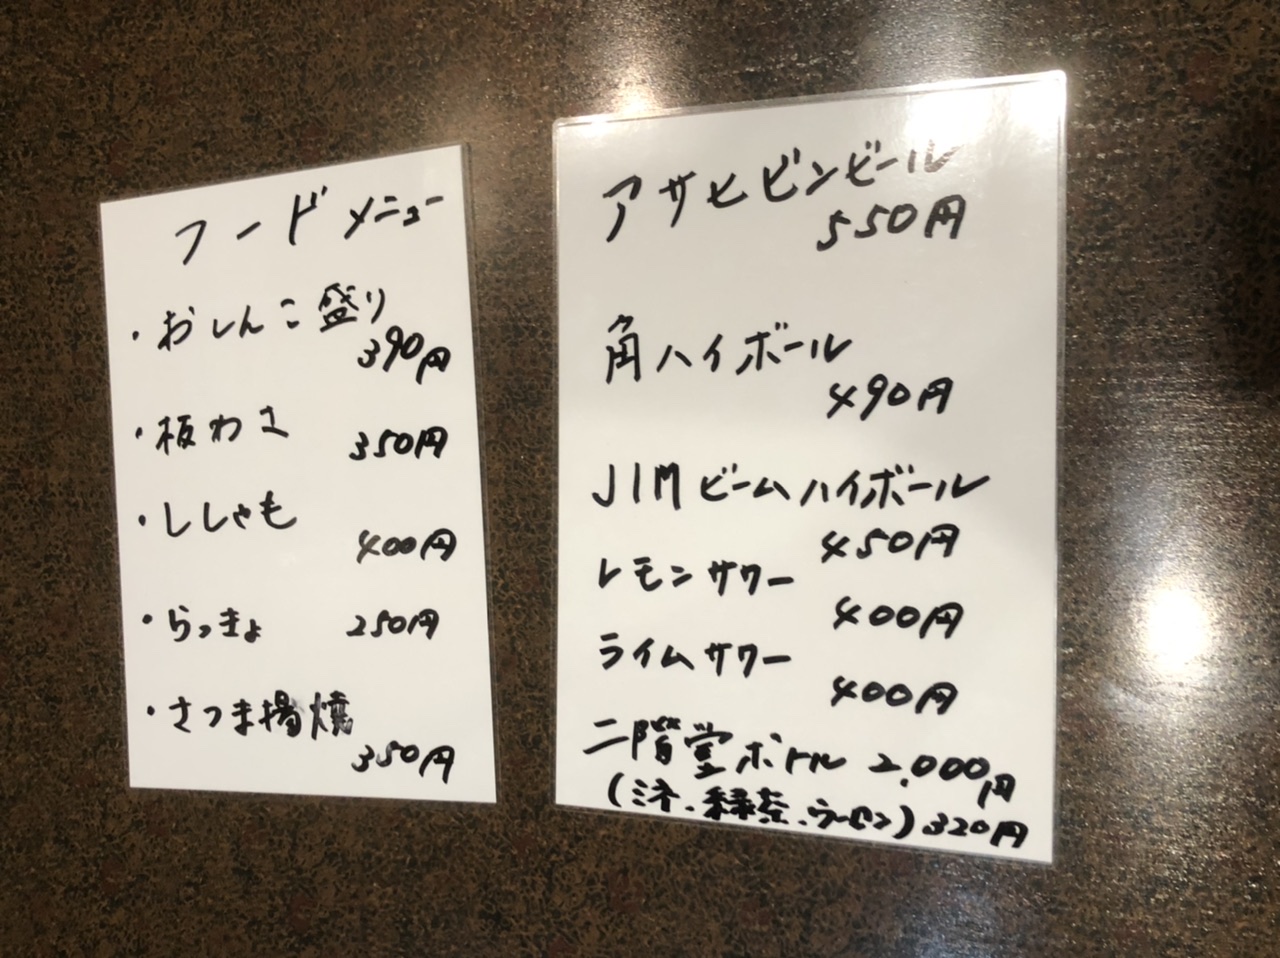 フードメニュー
・おしんこ盛り
390円
・板わさ 350円
・ししゃも
400円
・らっきょ 250円
・さつま揚焼
350円
アサヒビンビール
550円
角ハイボール
490円
JIMビームハイボール
450円
レモンサワー
400円
ライムサワー
400円
二階堂ボトル 2,000円
緑茶 320円